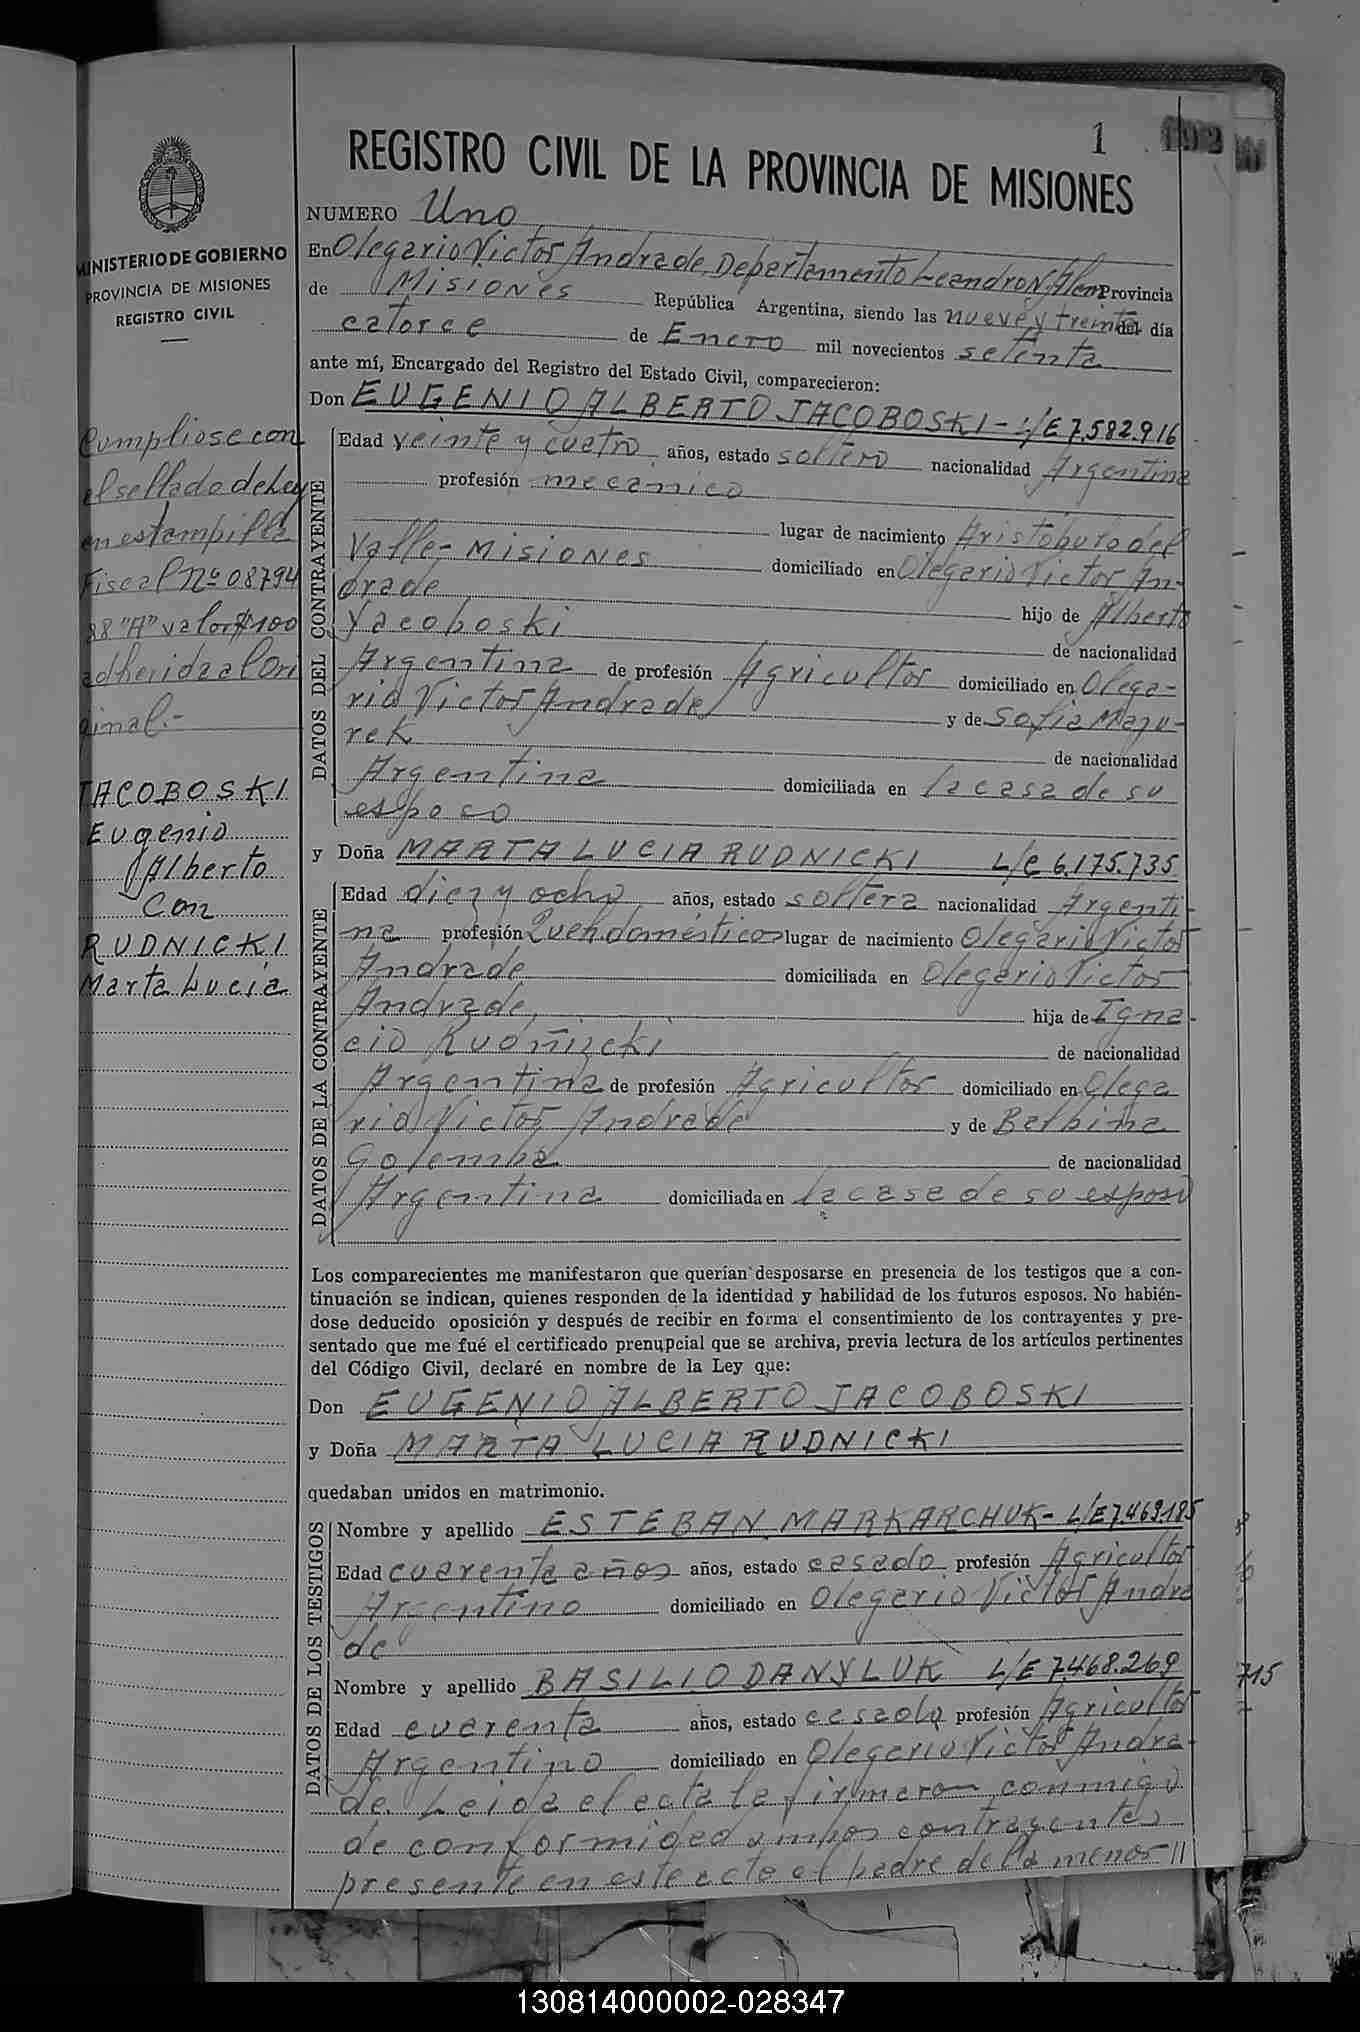 1
REGISTRO CIVIL DE LA PROVINCIA DE MISIONES
MINISTERIO DE GOBIERNO
PROVINCIA DE MISIONES
REGISTRO CIVIL
Cumpliose con
el sellado de Ley
en estampilla
Fiscal Nº 08794
88 "A" valor $100
adherida al Ori
ginal.-
JACOBOSKI
Eugenio
Alberto
Con
RUDNICKI
Marta Lucia
NUMERO Uno
En Olegario Victor Andrade, Departamento Leandro N. Alem Provincia
de Misiones República Argentina, siendo las nueve y treinta del día
catorce de Enero mil novecientos setenta
ante mí, Encargado del Registro del Estado Civil, comparecieron:
Don EUGENIO ALBERTO JACOBOSKI - L/E 7.582.916
DATOS DEL CONTRAYENTE
Edad veinte y cuatro años, estado soltero nacionalidad Argentina
profesión mecanico
lugar de nacimiento Aristobulo del
Valle - Misiones domiciliado en Olegario Victor An-
drade hijo de Alberto
Yacoboski de nacionalidad
Argentina de profesión Agricultor domiciliado en Olega-
rio Victor Andrade y de Sofia Mazu-
rek de nacionalidad
Argentina domiciliada en la casa de su
esposo
y Doña MARTA LUCIA RUDNICKI L/C 6.175.735
DATOS DE LA CONTRAYENTE
Edad diez y ocho años, estado soltera nacionalidad Argenti-
na profesión Queh. domésticos lugar de nacimiento Olegario Victor
Andrade domiciliada en Olegario Victor
Andrade, hija de Igna-
cio Rudñizcki de nacionalidad
Argentina de profesión Agricultor domiciliado en Olega
rio Victor Andrade y de Balbina
Golemba de nacionalidad
Argentina domiciliada en la casa de su esposo
Los comparecientes me manifestaron que querían desposarse en presencia de los testigos que a con-
tinuación se indican, quienes responden de la identidad y habilidad de los futuros esposos. No habién-
dose deducido oposición y después de recibir en forma el consentimiento de los contrayentes y pre-
sentado que me fué el certificado prenupcial que se archiva, previa lectura de los artículos pertinentes
del Código Civil, declaré en nombre de la Ley que:
Don EUGENIO ALBERTO JACOBOSKI
y Doña MARTA LUCIA RUDNICKI
quedaban unidos en matrimonio.
DATOS DE LOS TESTIGOS
Nombre y apellido ESTEBAN MARKARCHUK - L/E 7.469.185
Edad cuarenta años años, estado casado profesión Agricultor
Argentino domiciliado en Olegario Victor Andra
de
Nombre y apellido BASILIO DANYLUK L/E 7.468.269
Edad cuarenta años, estado casado profesión Agricultor
Argentino domiciliado en Olegario Victor Andra-
de. Leida el acta la firmaron conmigo
de conformidad ambos contrayentes
presente en este acto el padre de la menor //
715
130814000002-028347